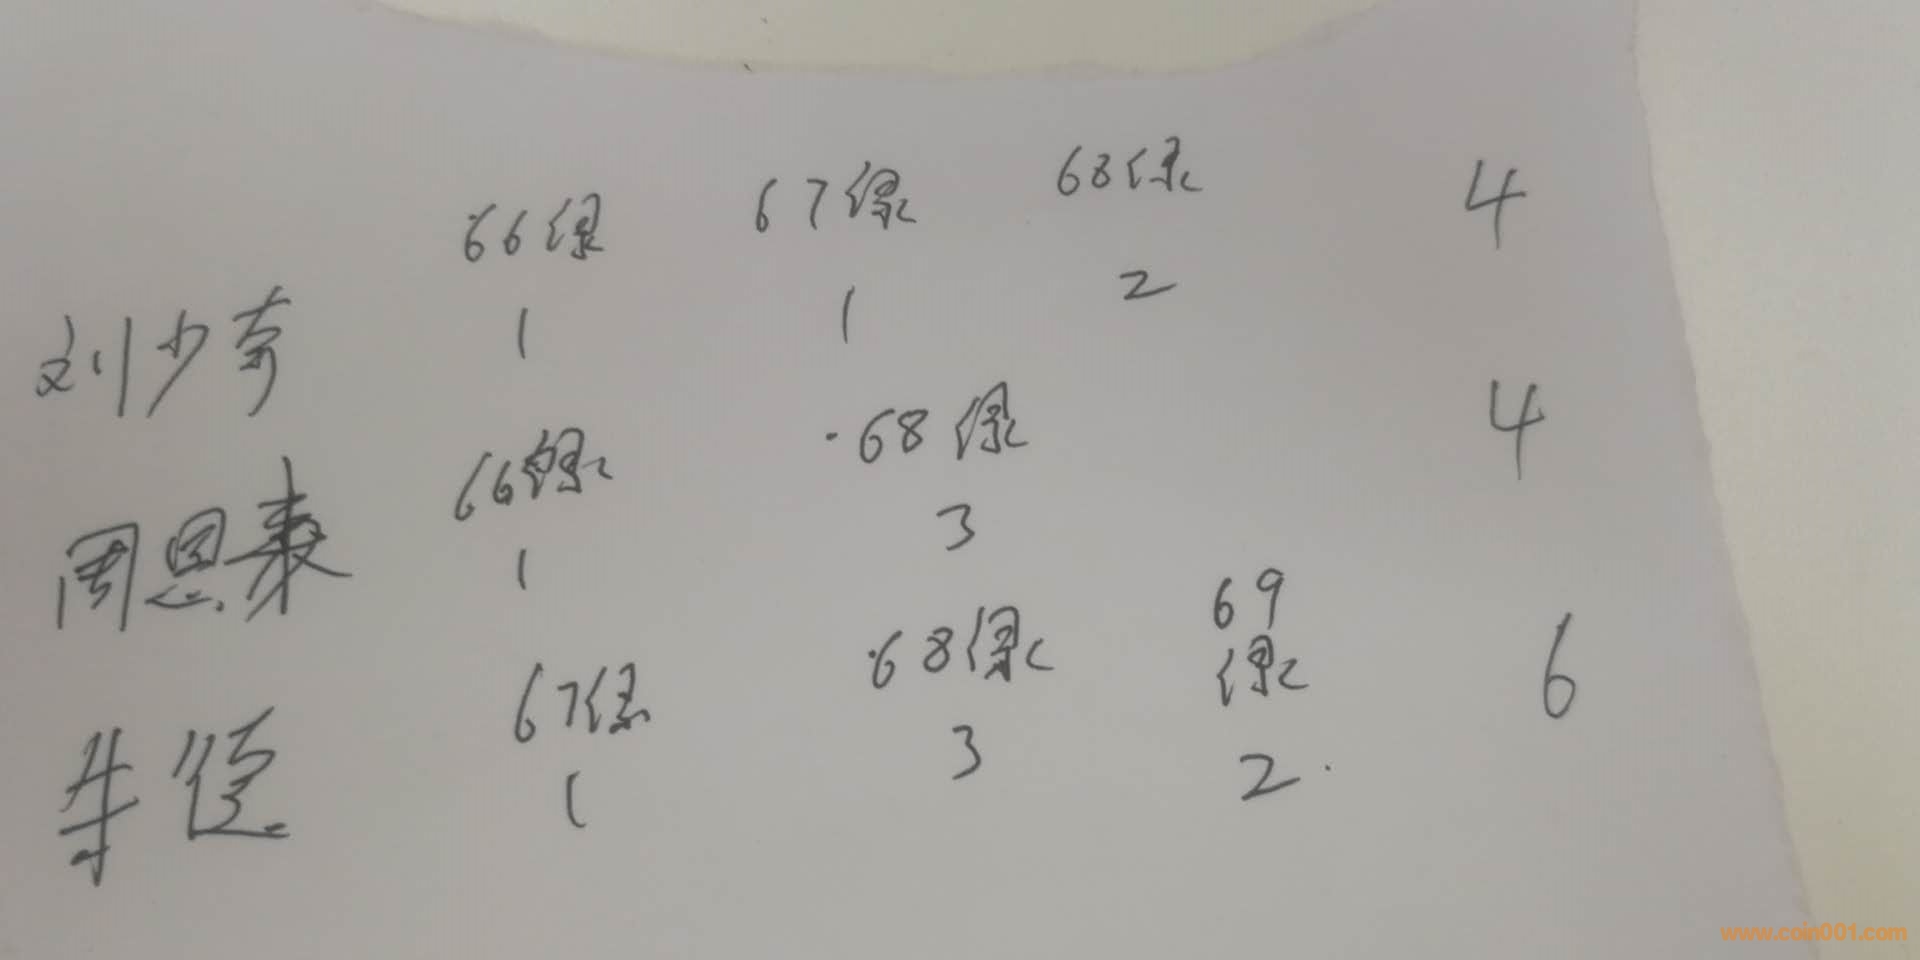 66绿 67绿 68绿 4
刘少奇 1 1 2
66绿 68绿 4
周恩来 1 3
67绿 68绿 69绿 6
朱德 1 3 2
www.coin001.com